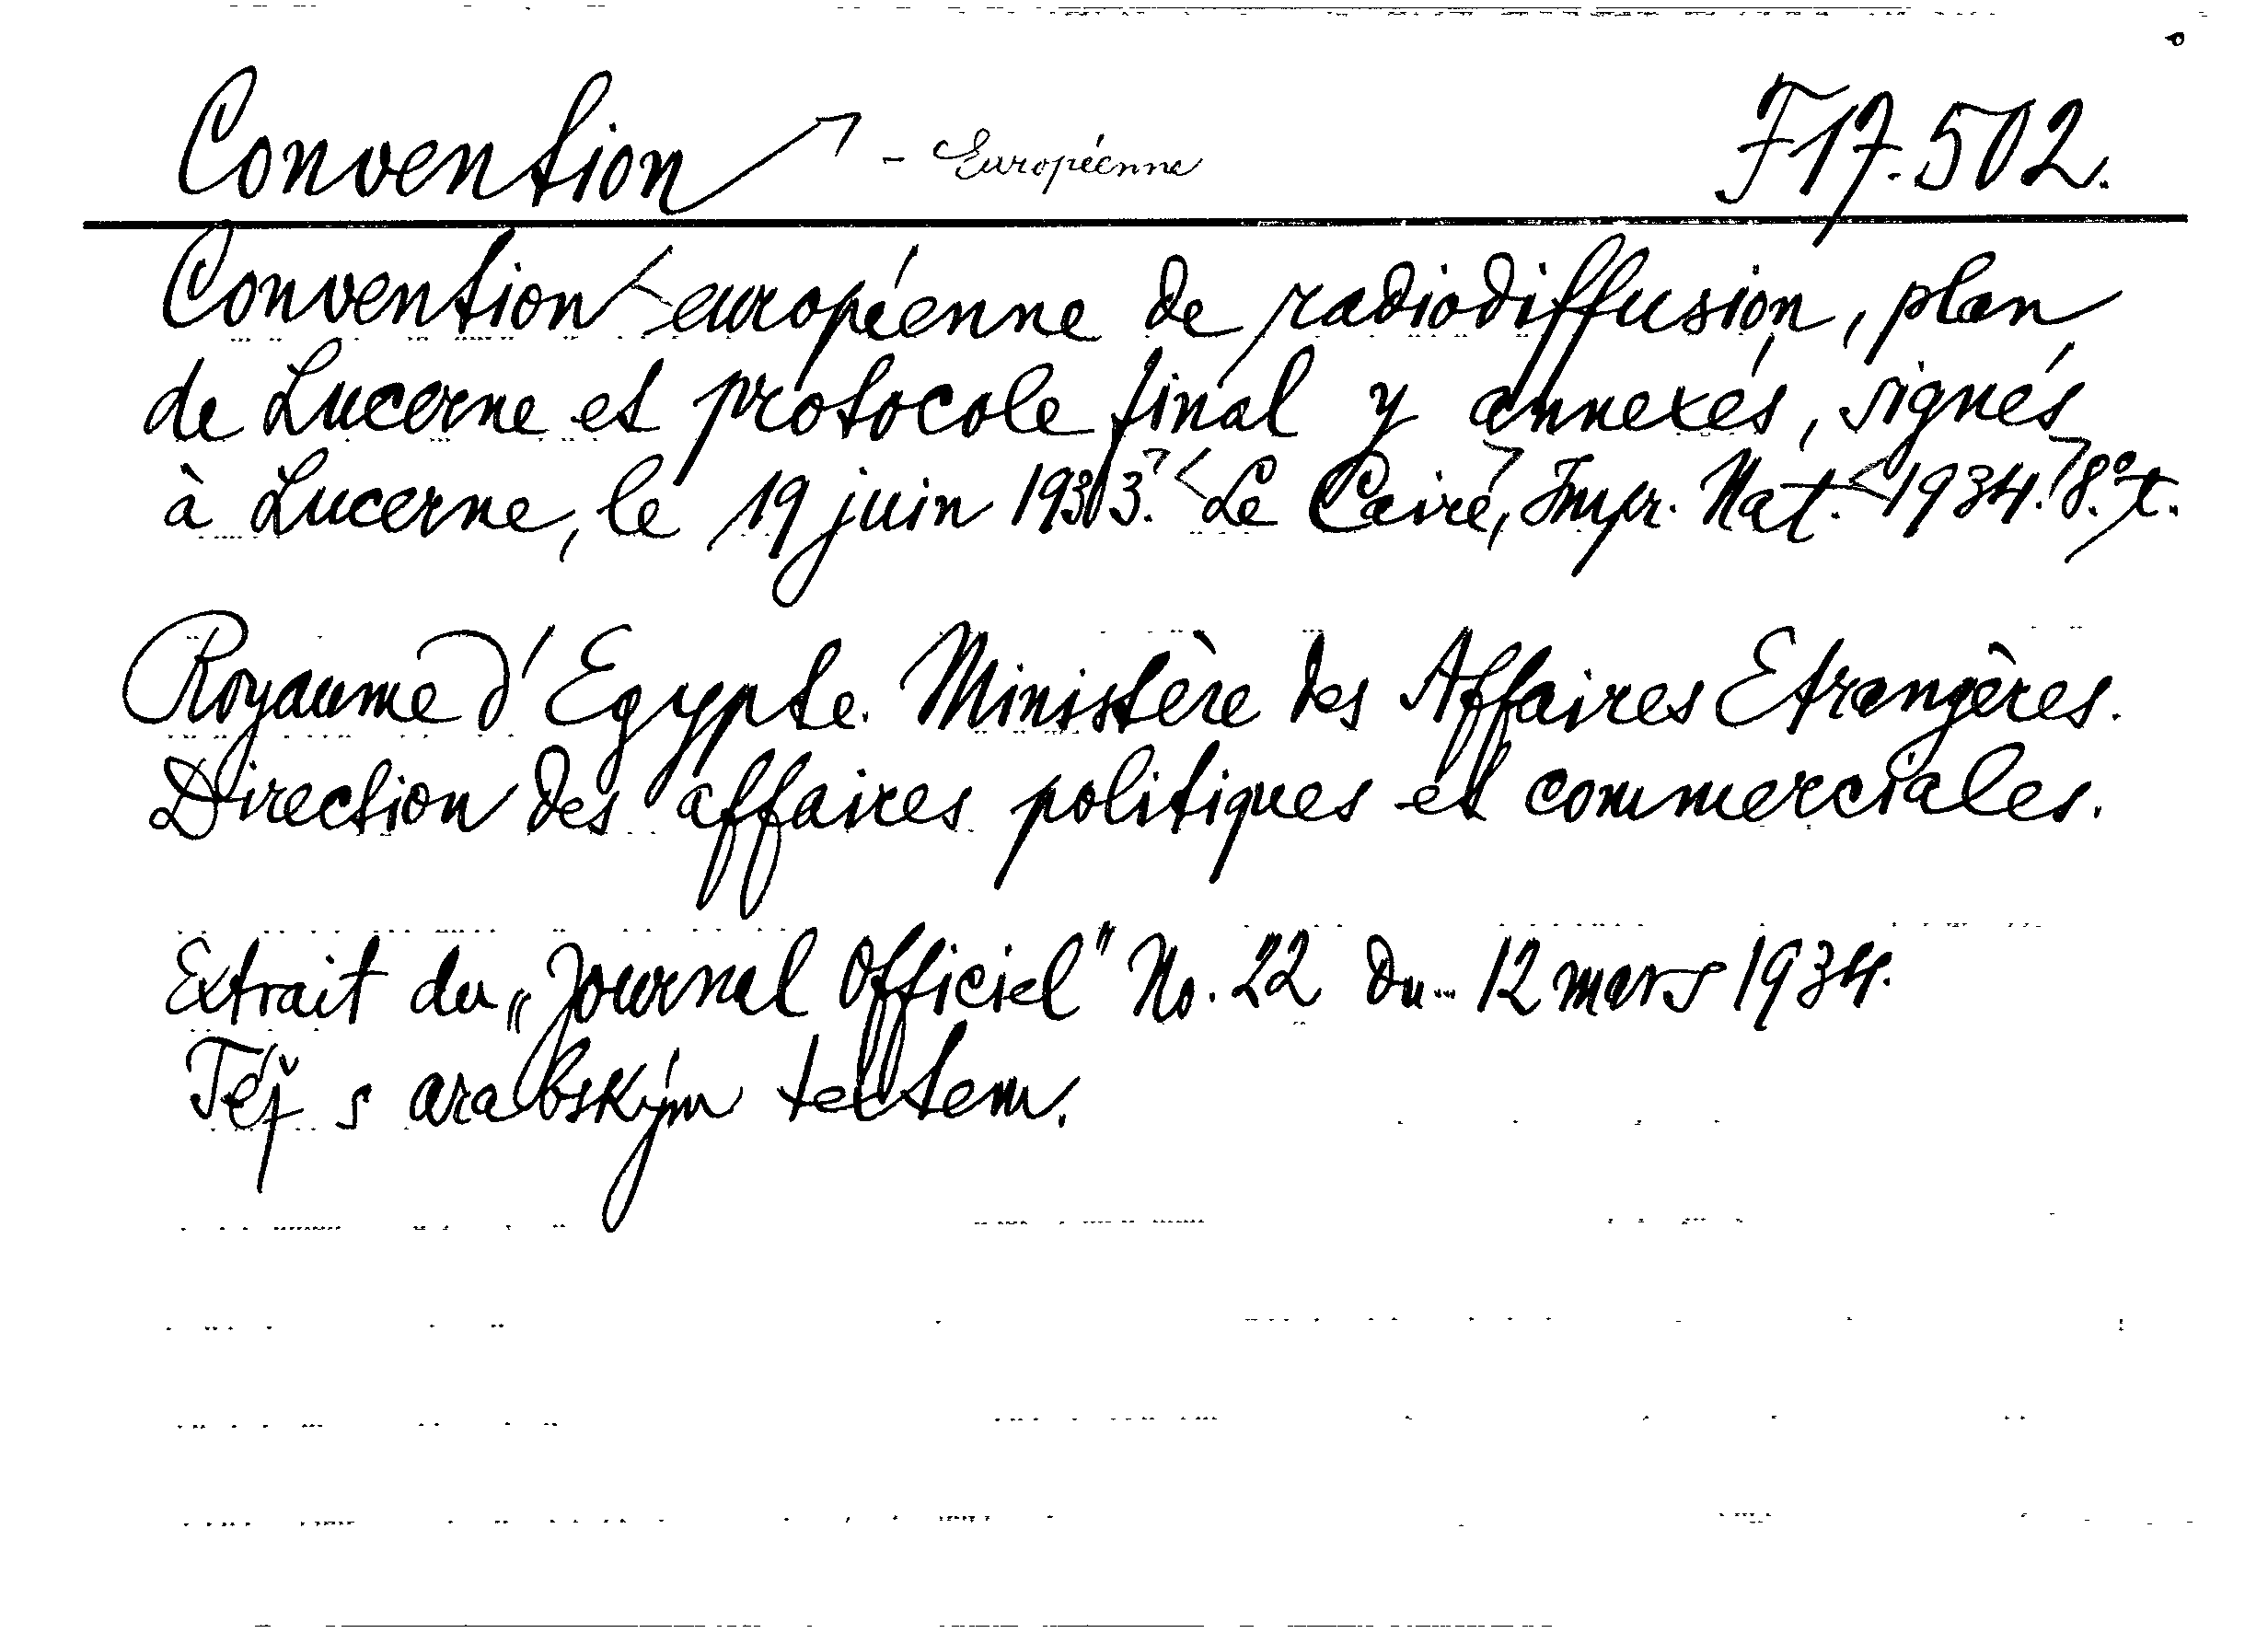 Convention - Européenne F 17.502.
Convention européenne de radiodiffusion, plan
de Lucerne et protocole final y annexés, signés
à Lucerne, le 19 juin 1933. Le Caire, Impr. Nat. 1934. 8°.
Royaume d'Egypte. Ministère des Affaires Etrangères.
Direction des affaires politiques et commerciales.
Extrait du „Journal Officiel" No. 22 du 12 mars 1934.
Též s arabským textem.